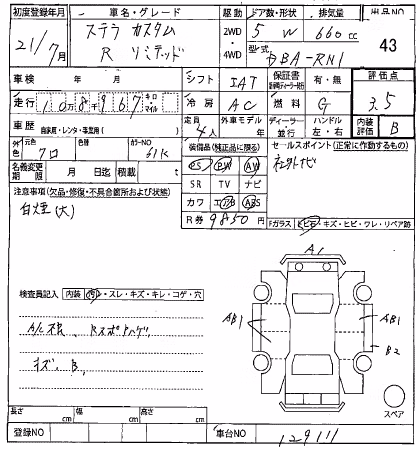 初度登録年月 車名・グレード 駆動 ドア数・形状 排気量 出品NO
21/7月 ステラ カスタム R リミテッド 2WD・4WD 5 W 660cc 43
型式 DBA-RN1
車検 年 月 シフト IAT 保証書 有・無 評価点
走行 10万8千967 キロ・マイル 冷房 AC 燃料 G 3.5
車歴 自家用・レンタ・事業用( ) 定員 4人 外車モデル 年 ディーラー・並行 ハンドル 左・右 内装評価 B
外色 元色 クロ 色替 カラーNO 61K 装備品(純正品に限る) セールスポイント(正常に作動するもの)
名義変更期限 月 日迄 積載 t PS PW AW 社外ナビ
注意事項(欠品・修復・不具合箇所および状態) SR TV ナビ
白煙(大) カワ エアB ABS
R券 9850円 Fガラス ヒビ石・キズ・ヒビ・ワレ・リペア跡
A1
検査員記入 内装 汚レ・スレ・キズ・キレ・コゲ・穴
AB1 AB1
B2
キズ、B、
スペア
長さ cm 幅 cm 高さ cm
登録NO 車台NO 129111